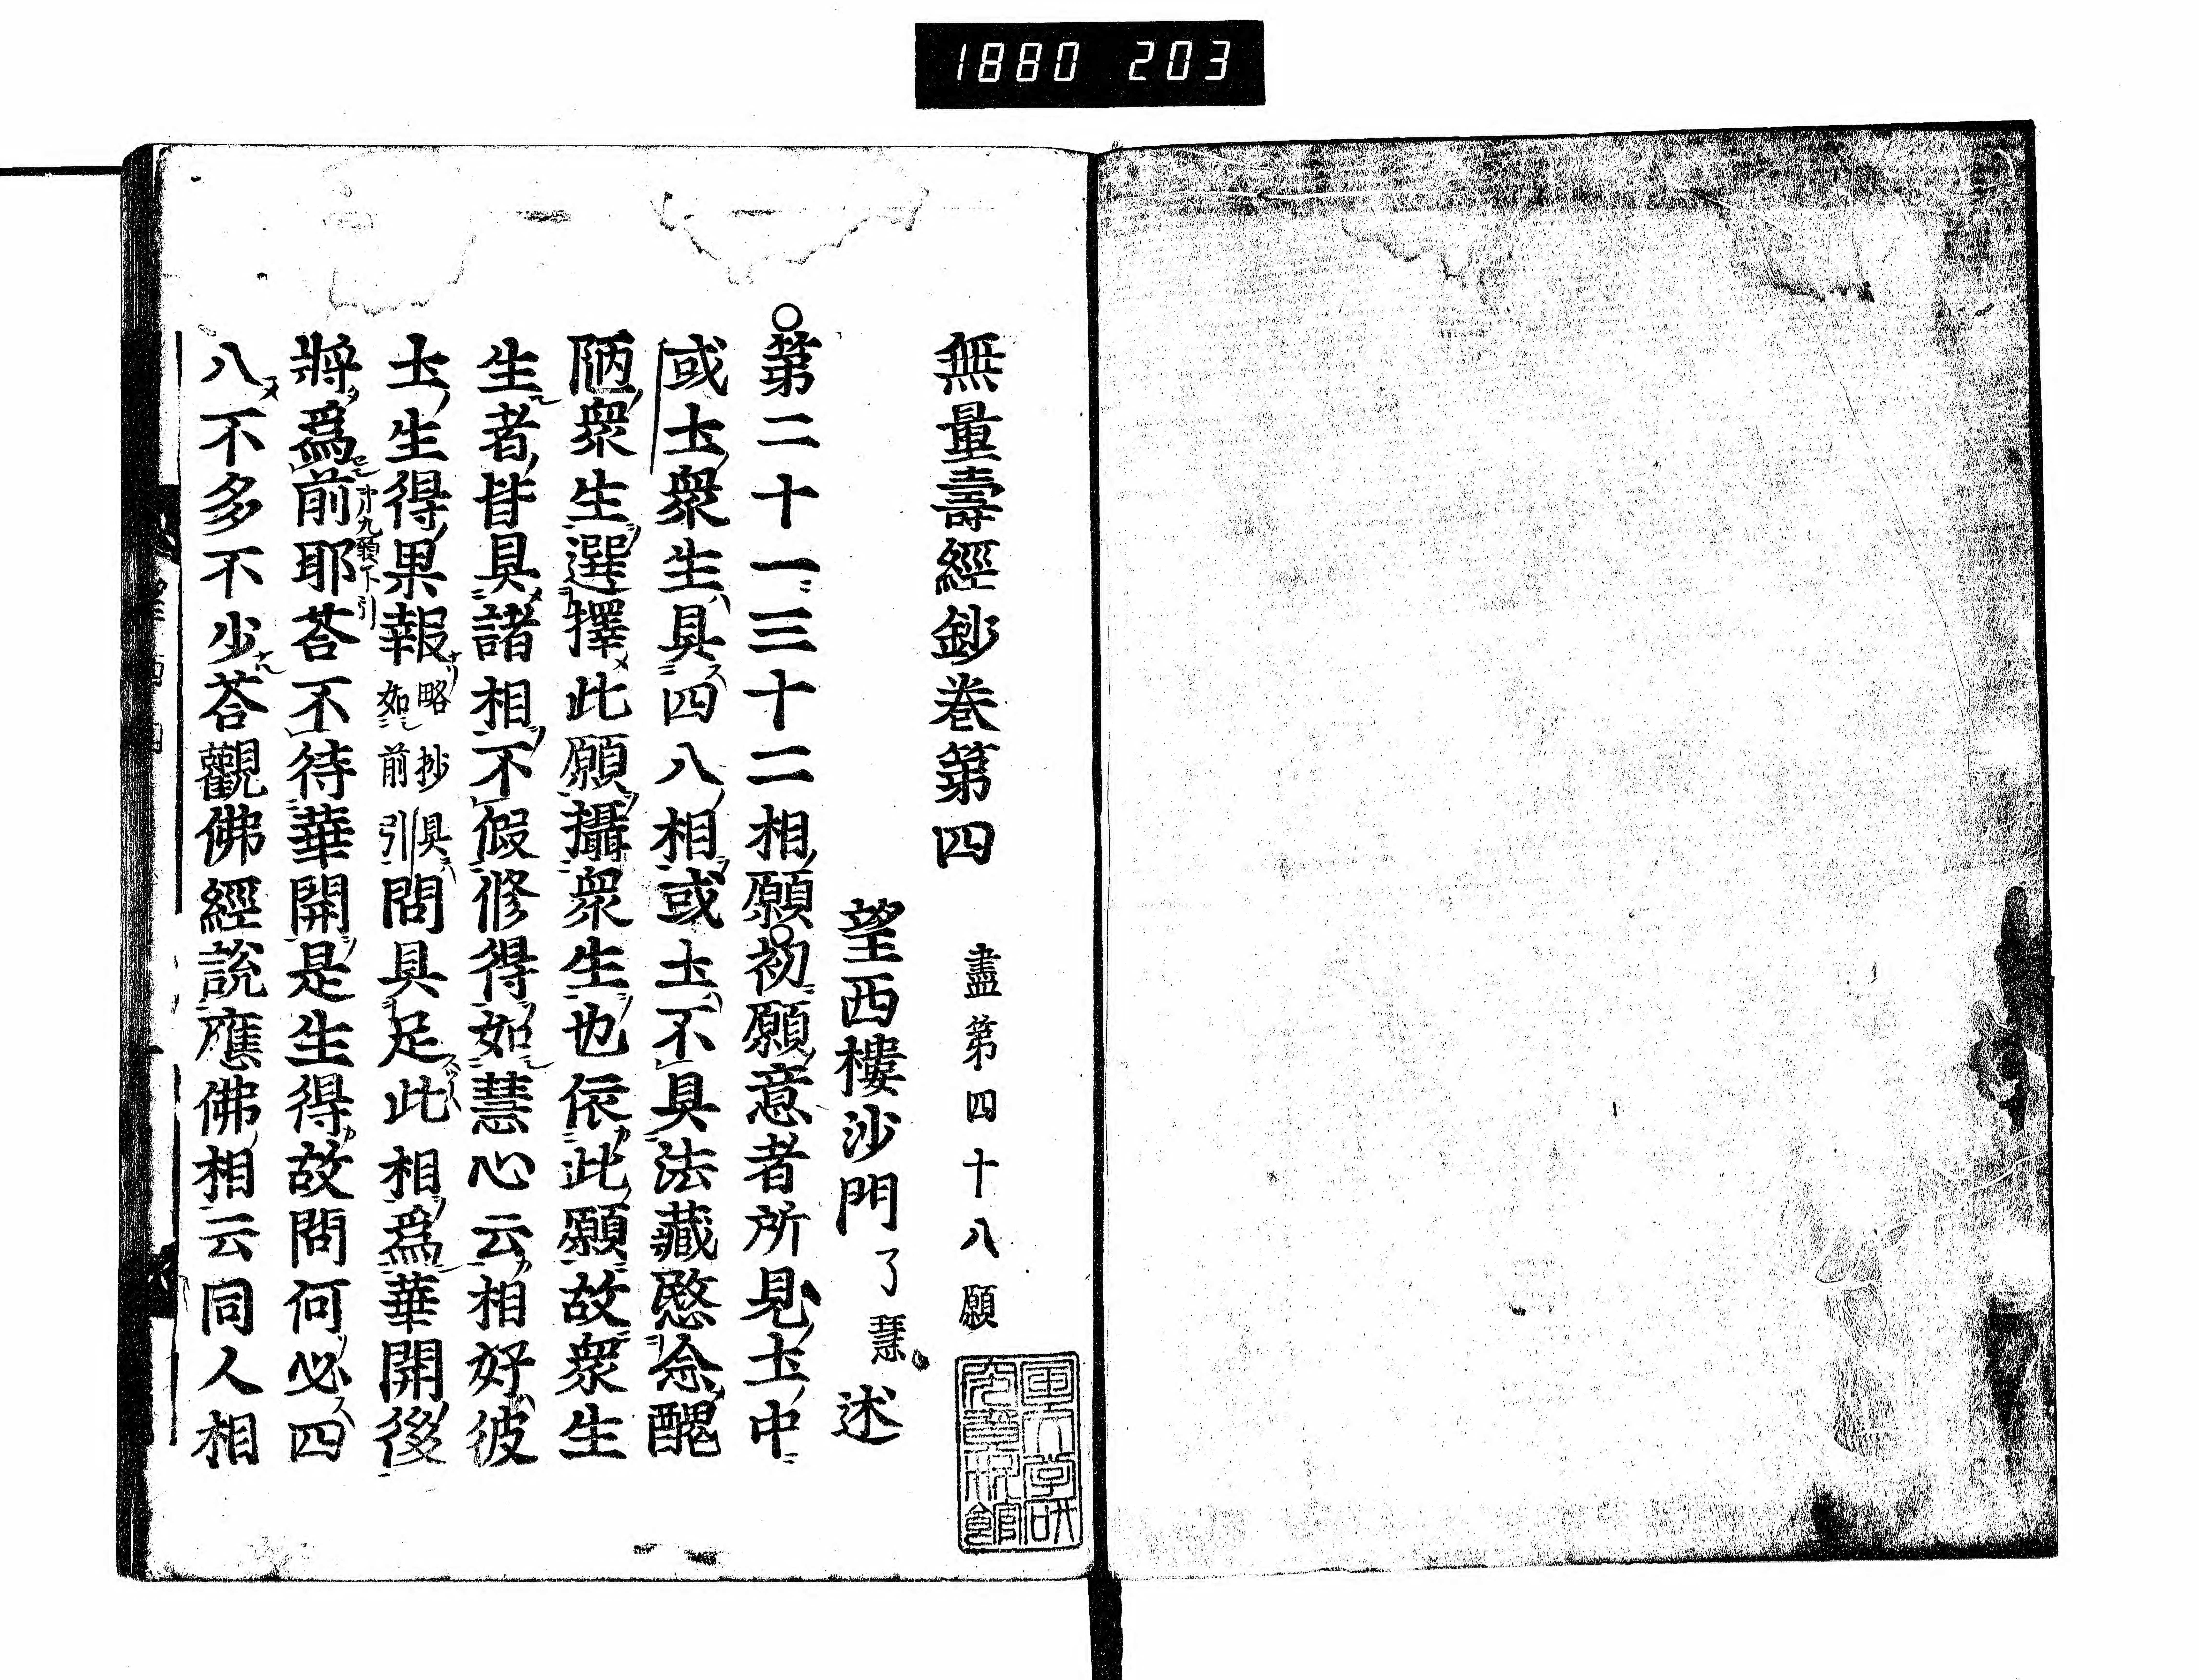 1880 203
無量壽經鈔卷第四 盡第四十八願
望西樓沙門了慧述
○第二十一三十二相願○初願意者所見土中
或土衆生具四八相或土不具法藏愍念醜
陋衆生選擇此願攝衆生也依此願故衆生
生者皆具諸相不假修得如慧心云相好彼
土生得果報略抄具如前引問具足此相爲華開後
將爲前耶荅不待華開是生得故問何必四
オ九願下引
八不多不少荅觀佛經說應佛相云同人相